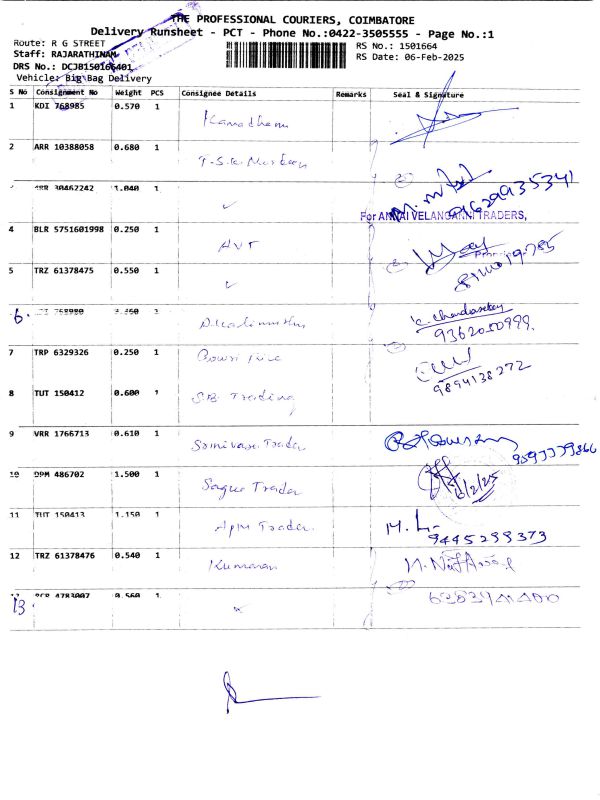 THE PROFESSIONAL COURIERS, COIMBATORE
Delivery Runsheet - PCT - Phone No.:0422-3505555 - Page No.:1
Route: R G STREET
RS No.: 1501664
Staff: RAJARATHINAM
RS Date: 06-Feb-2025
DRS No.: DCJB150166401
Vehicle: Big Bag Delivery
S No Consignment No Weight PCS Consignee Details Remarks Seal & Signature
1 KDI 768985 0.570 1
2 ARR 10388058 0.680 1
30462242 1.040
9629935341
For ANNAI VELANGANNI TRADERS,
4 BLR 5751601998 0.250 1 AVT
5 TRZ 61378475 0.550 1
6. 768980
K. Chandrasekar
9362050999.
7 TRP 6329326 0.250 1
9894138272
8 TUT 150412 0.600 1 S.B. Trading
9 VRR 1766713 0.610 1 Srinivasa Trader
10 DPM 486702 1.500 1 Sague Trader
6/2/25
11 TUT 150413 1.150 1 APM Trader.
M. L.
9445299373
12 TRZ 61378476 0.540 1 Kumaran
13 4783007 0.560 1